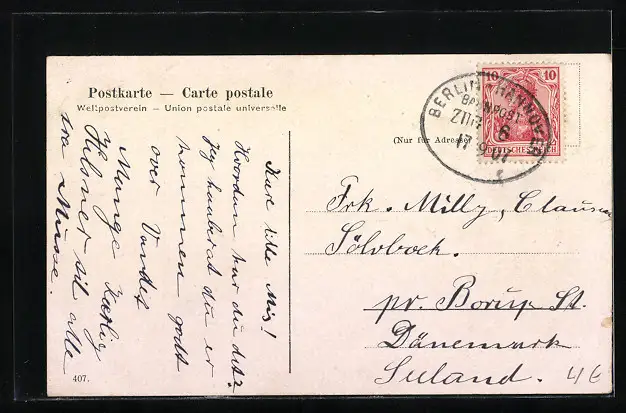 Postkarte — Carte postale
Weltpostverein — Union postale universelle
(Nur für Adresse)
10 10
DEUTSCHES REICH
BERLIN HANNOVER
BAHNPOST
ZUG 6
17 9 07
Kære lille Mis!
Hvordan har du det?
Jeg haaber at du er
kommen godt
over Vandet
Mange Kærlig
Hilsner til alle
fra Musse.
Frk. Milly, Clausen
Sölvbæk.
pr. Borup St.
Dänemark
Seeland.
407.
4 E